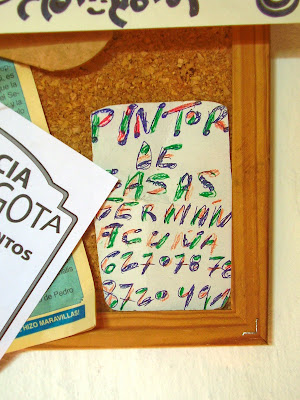 PINTOR
DE
CASAS
GERMÁN
ACUÑA
627·7878
CIA
GOTA
NTOS
de Pedro
HIZO MARAVILLAS!